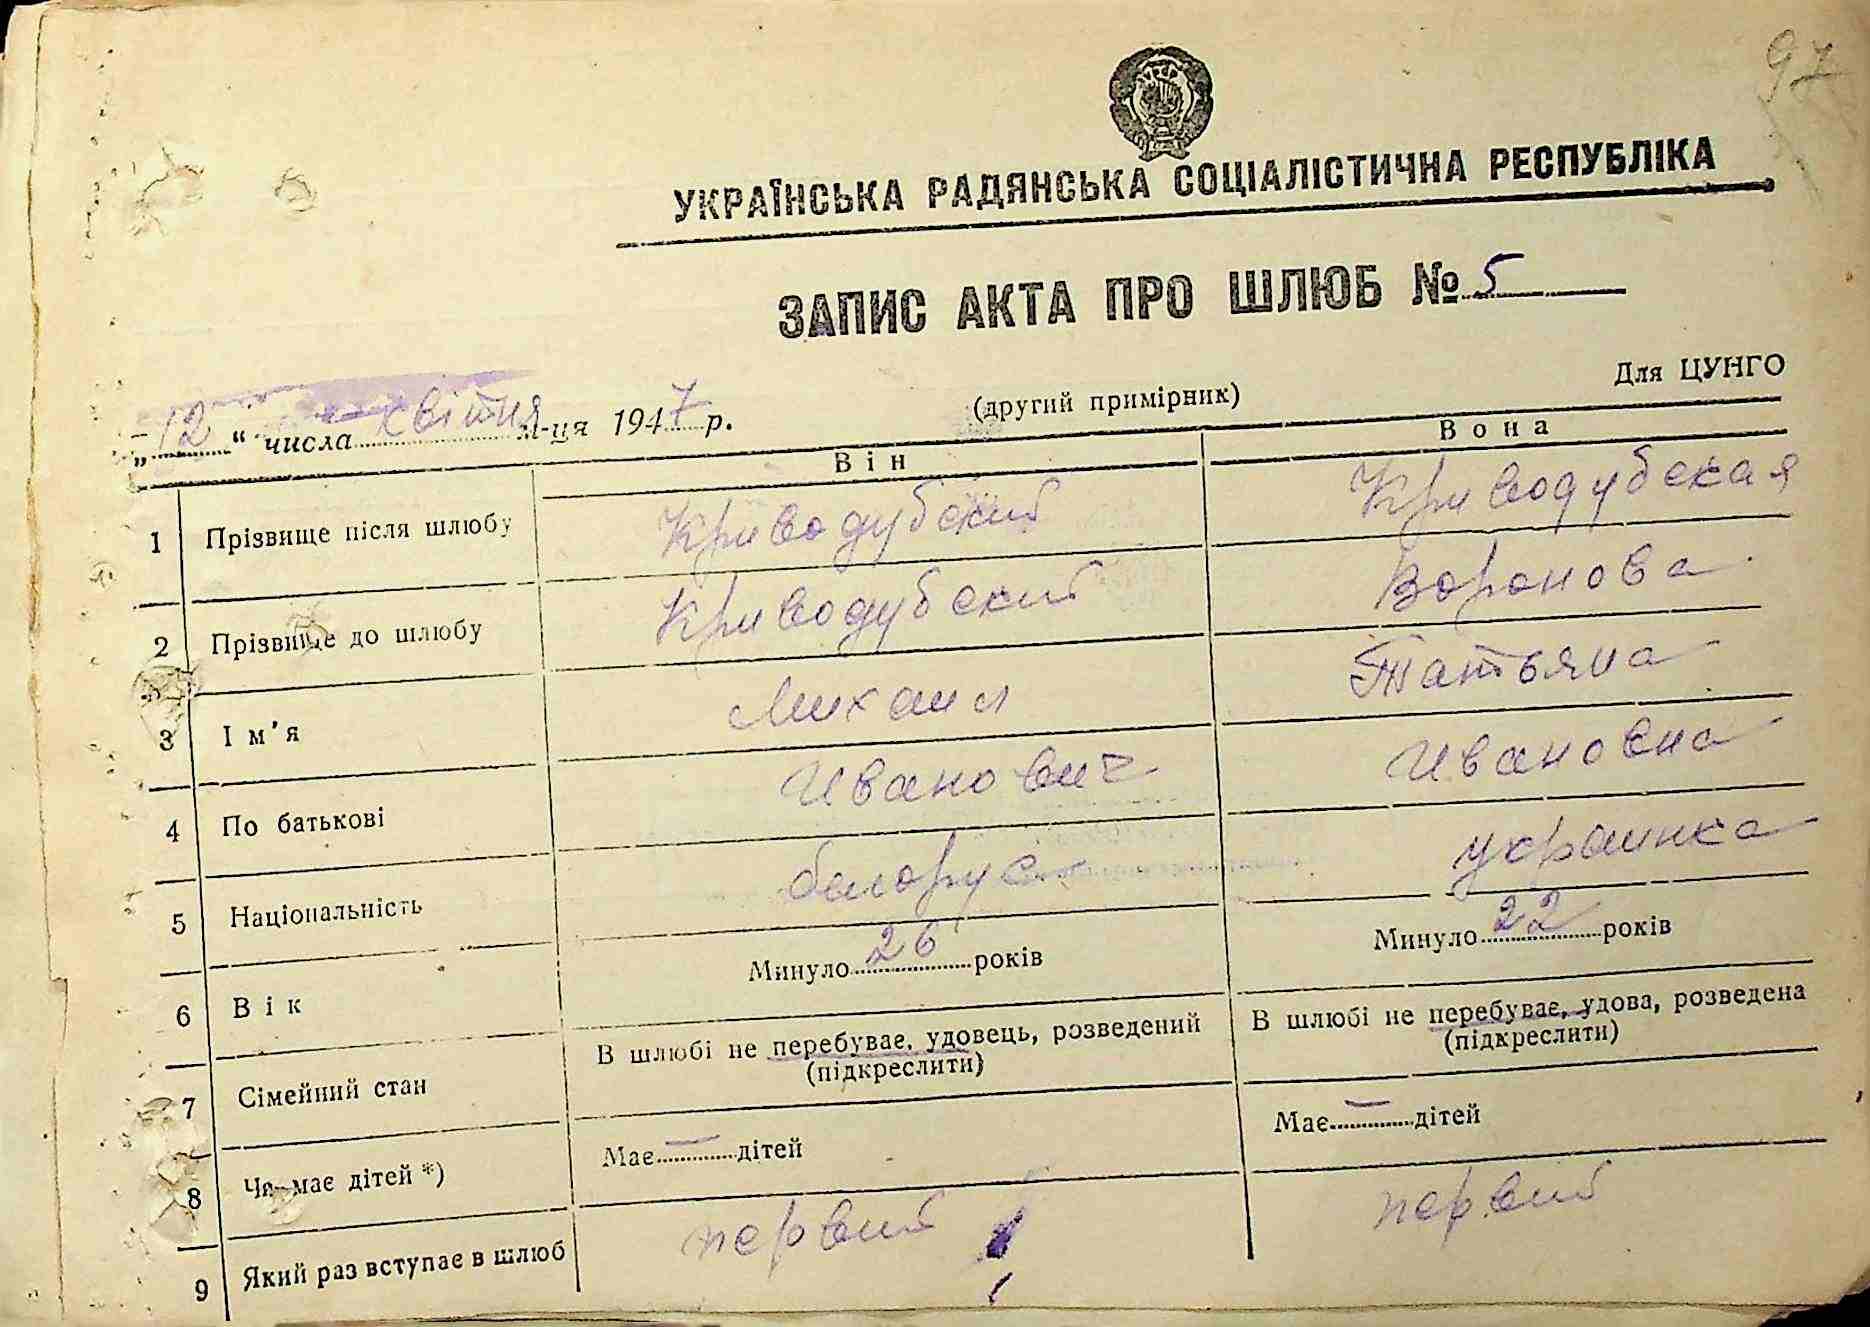 97
УКРАЇНСЬКА РАДЯНСЬКА СОЦІАЛІСТИЧНА РЕСПУБЛІКА
ЗАПИС АКТА ПРО ШЛЮБ № 5
Для ЦУНГО
„12“ числа квітня м-ця 1947 р. (другий примірник)
Він Вона
1 Прізвище після шлюбу Криводубский Криводубская
2 Прізвище до шлюбу Криводубский Воронова
3 Ім'я Михаил Татьяна
4 По батькові Иванович Ивановна
5 Національність белорус украинка
6 Вік Минуло 26 років Минуло 22 років
7 Сімейний стан В шлюбі не перебуває, удовець, розведений В шлюбі не перебуває, удова, розведена
(підкреслити) (підкреслити)
8 Чи має дітей *) Має — дітей Має — дітей
9 Який раз вступає в шлюб первий первий